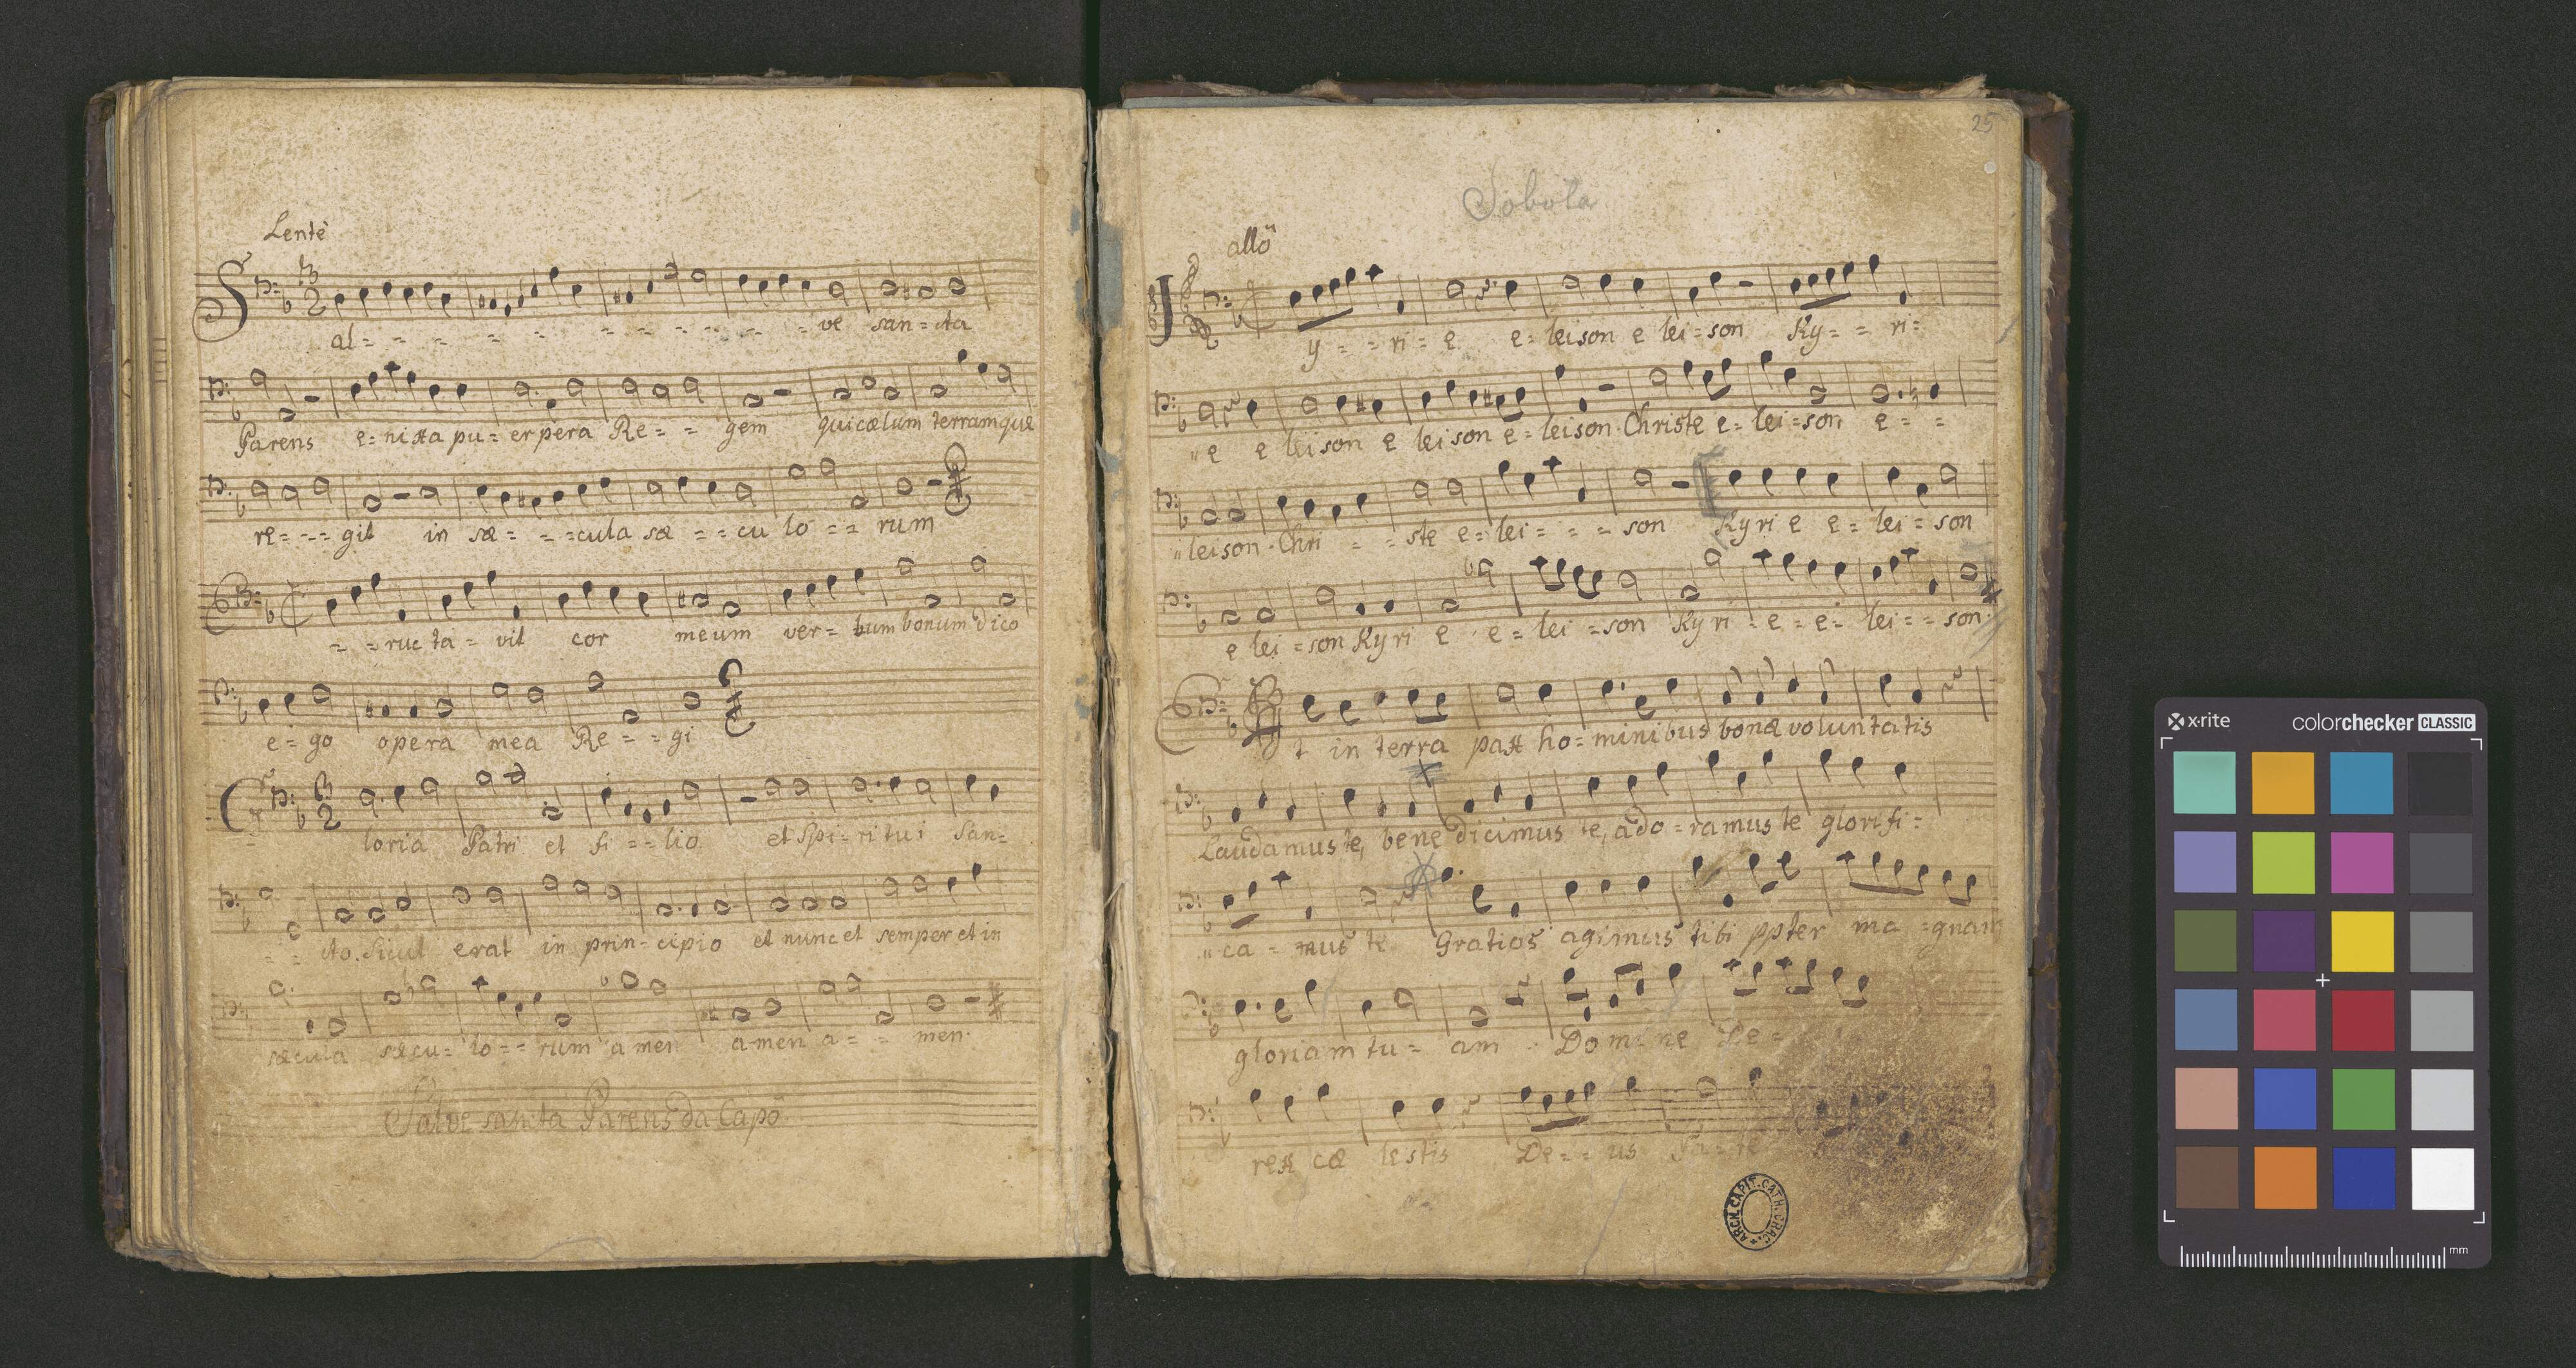 Lentè
3 2
al - - - - - - - - - - - ve san = cta
Parens e = nixa pu = erpera Re = - gem qui cœlum terramque
re = - - = git in sæ = - - = cula sæ - = cu lo = = rum
= = ruc ta = vit cor meum ver = bum bonum dico
e = go opera mea Re = = gi
3 2
Gloria Patri et fi = = lio et Spi = ritui San =
= = cto. Sicut erat in prin = cipio et nunc et semper et in
sæcula sæcu = lo = = rum amen amen a = = men.
Salve sancta Parens da Capo
25
Sobota
allō
y = = ri = e e = leison e lei = son Ky = = ri =
" e e leison e leison e = leison. Christe e = lei = son e = =
" leison. Chri = = ste e = lei = = = son Kyri e e = lei = son
e lei = son Kyri e e = lei = son Kyri = e = e = lei = = son.
Et in terra pax ho = minibus bonæ voluntatis
Laudamus te, bene dicimus te, ado = ramus te glorifi =
" ca = mus te Gratias agimus tibi ppter ma = gnam
gloriam tu = am. Domine De =
rex cœ lestis De = = us Pa = te
ARCH. CAPIT. CATH. CRAC.
x·rite colorchecker CLASSIC
mm